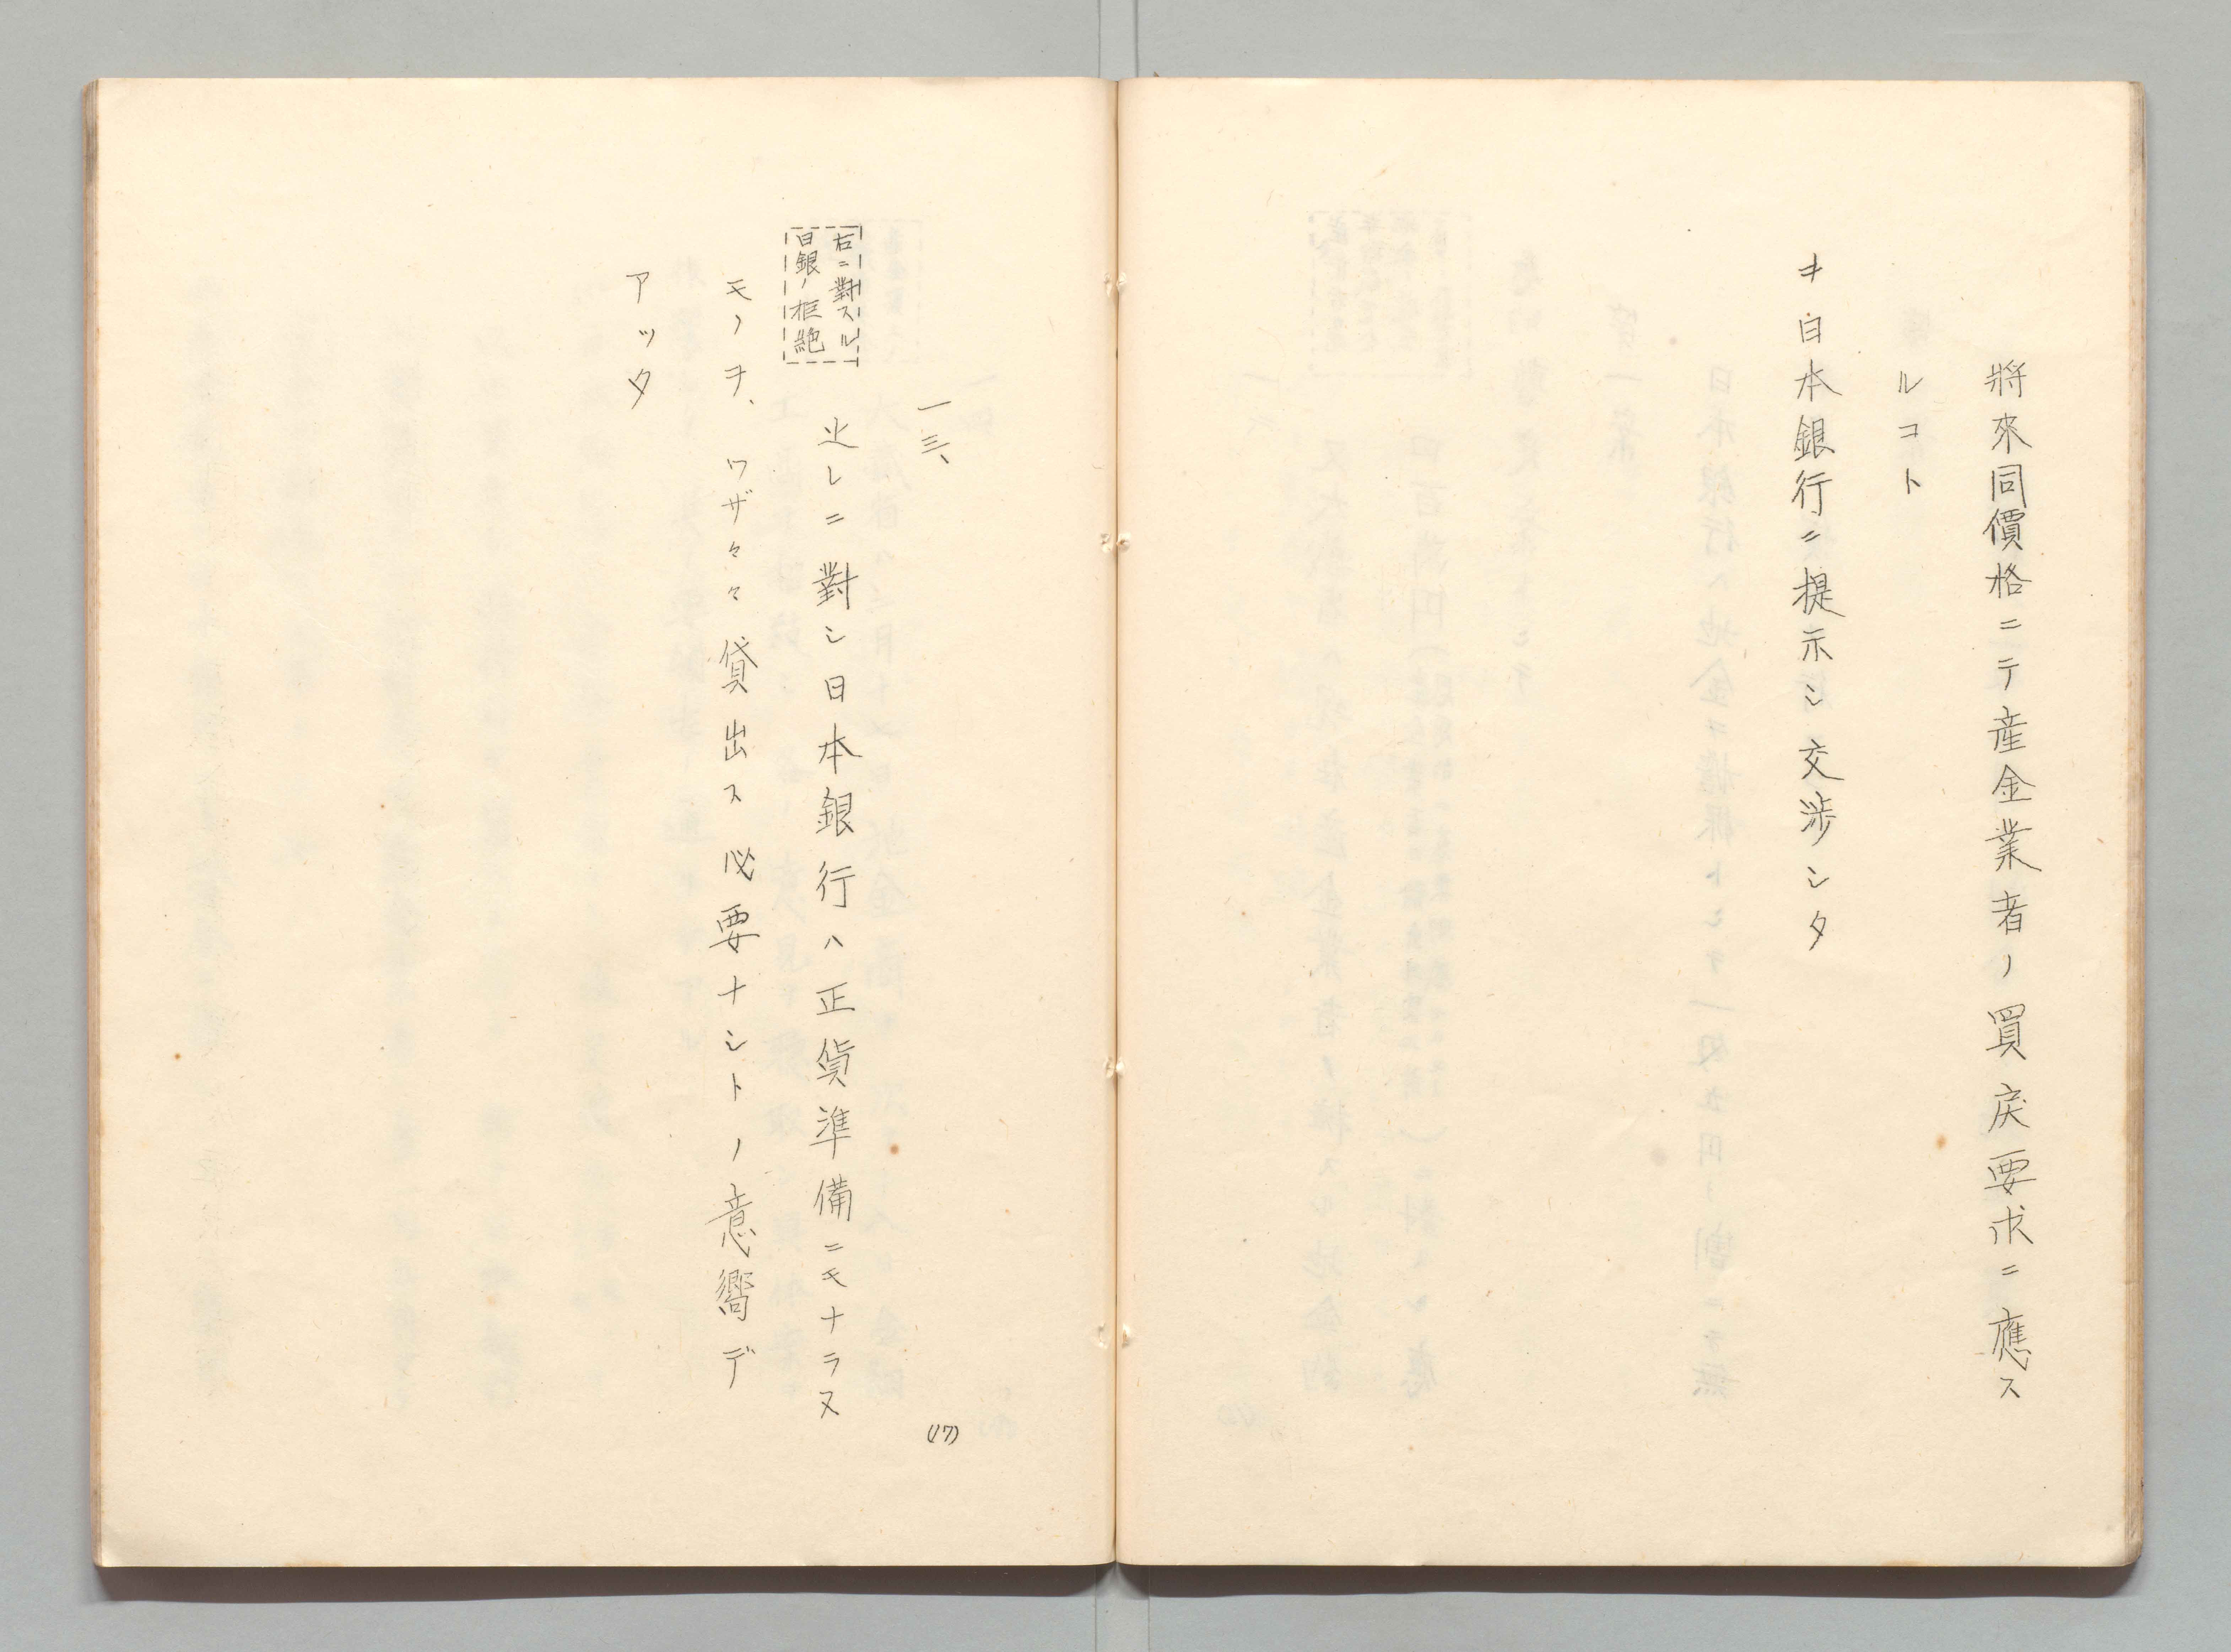 將來同價格ニテ産金業者ノ買戻要求ニ應ス
ルコト
ヲ日本銀行ニ提示シ交渉シタ
一三、
右ニ對スル
日銀ノ拒絶
之レニ對シ日本銀行ハ正貨準備ニモナラヌ
モノヲ、ワザ々々貸出ス必要ナシトノ意嚮デ
アッタ
(17)